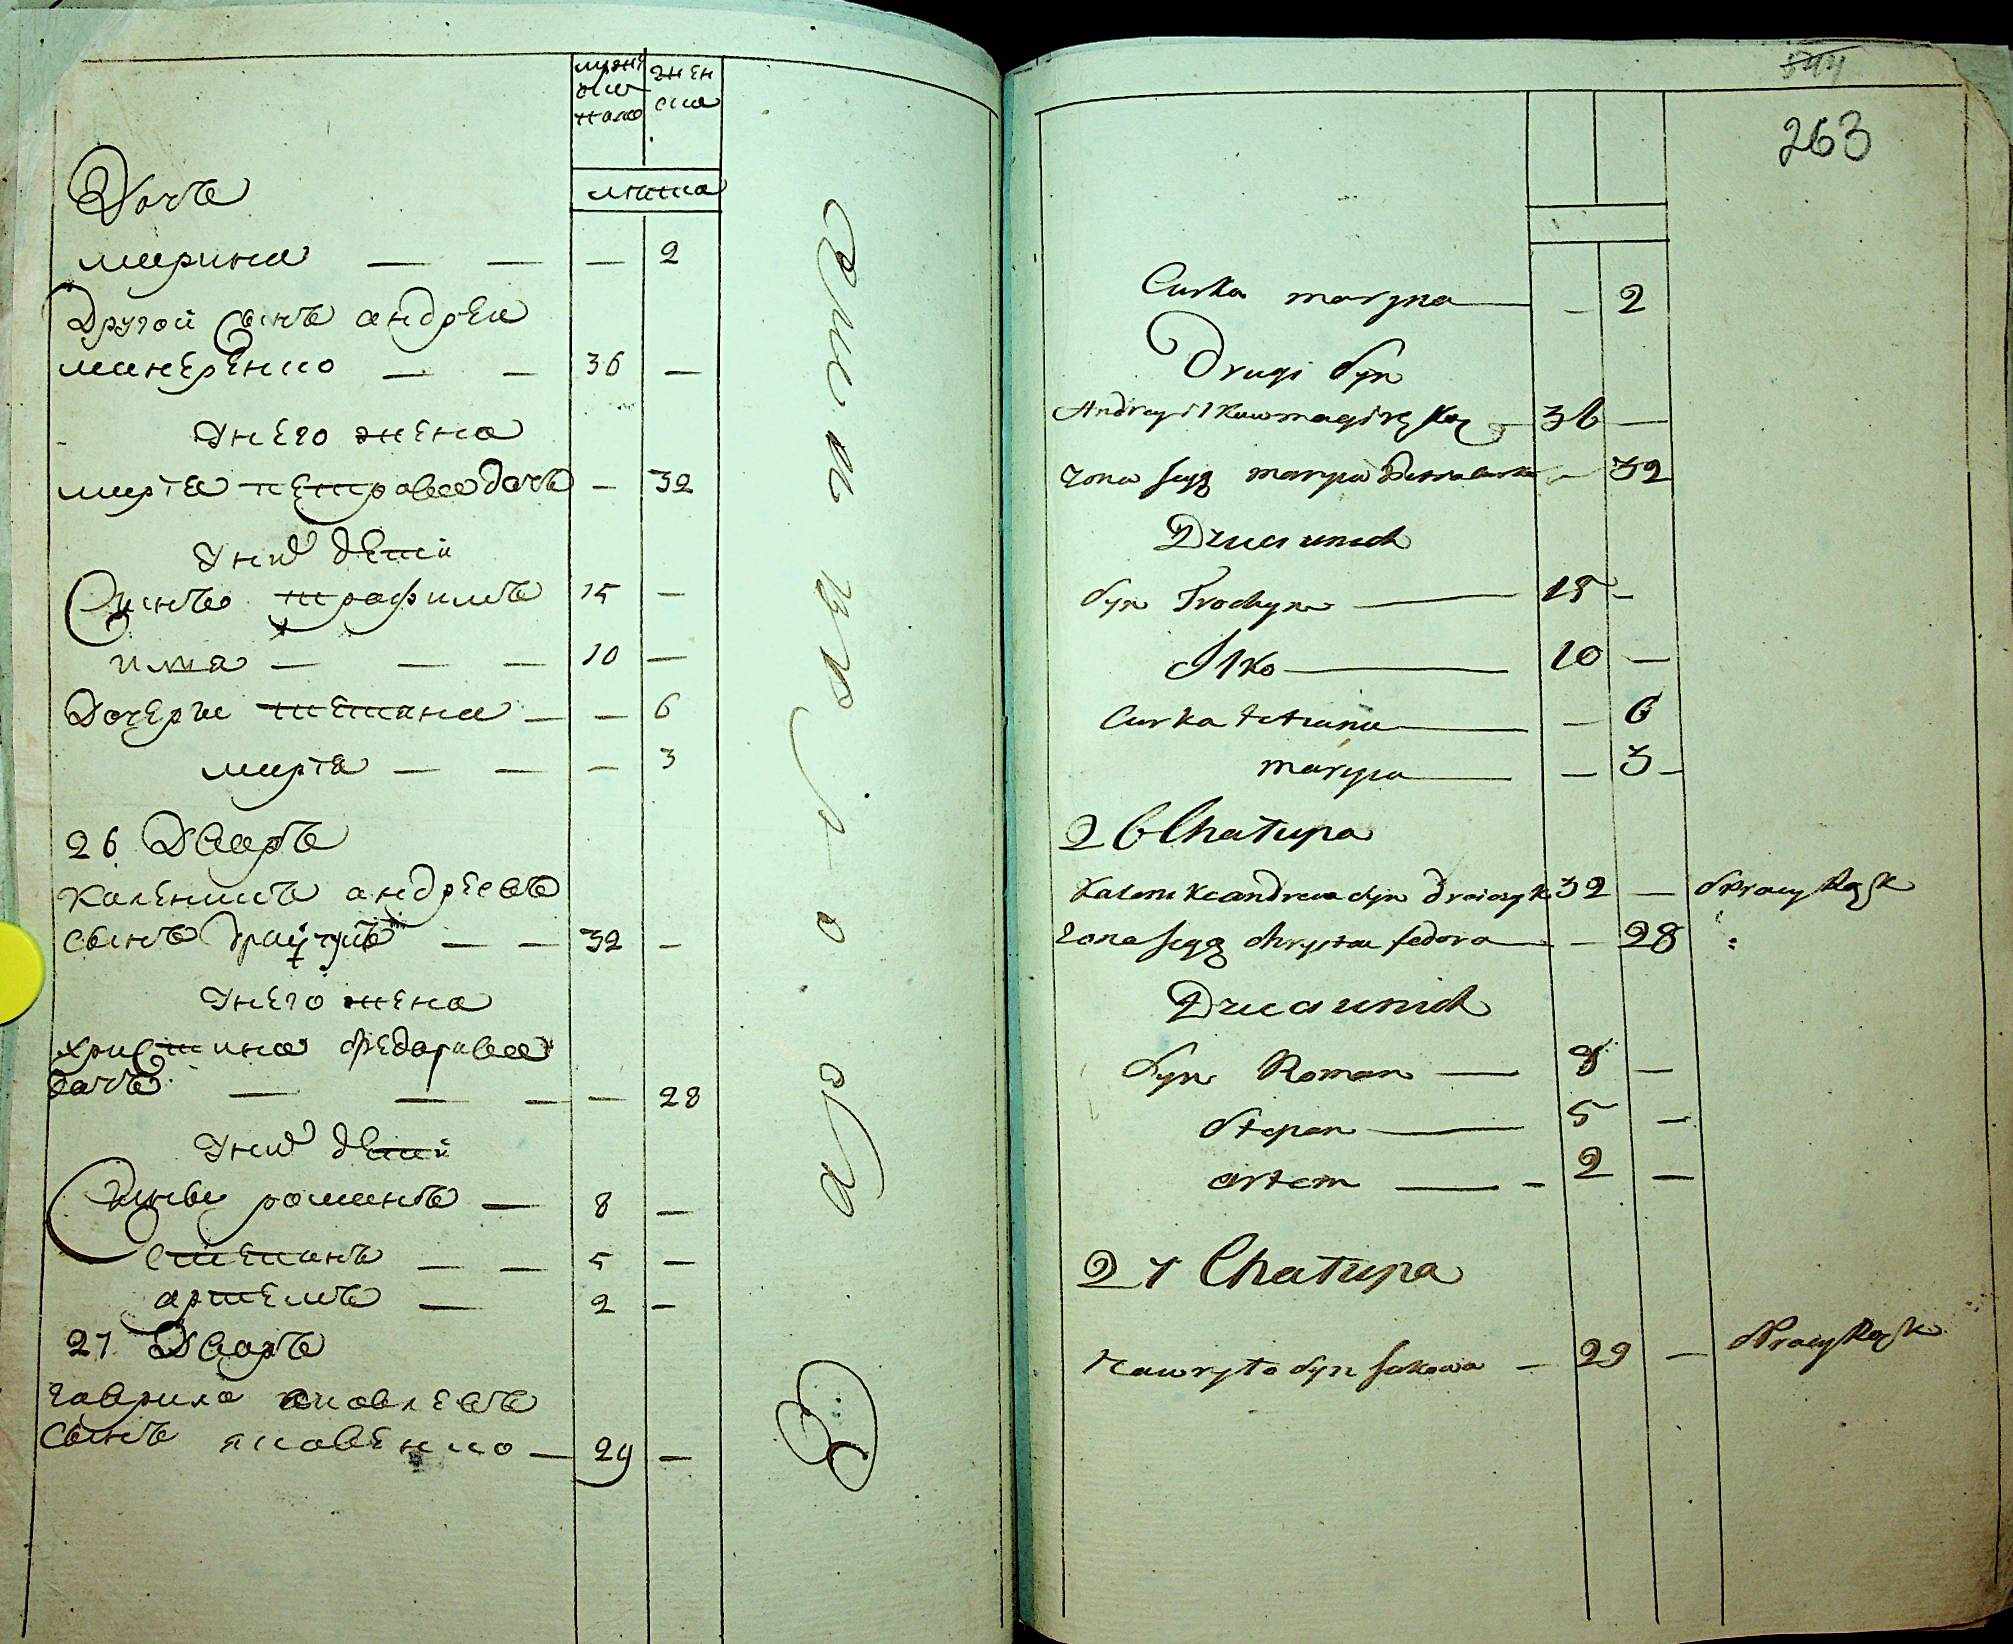 мужи
ско
полу
жен
ска
лѣта
Дочь
марина — — — 2
Другой сынъ андреи
макеренко — — 36 —
Унего жена
марѳа петрова дочь — 32
Уних дети
Сынъ трафимъ 15 —
илка — — — 10 —
Дочери тетяна — — 6
марѳа — — — 3
26 Дворъ
каленикъ андреевъ
сынъ — — 32 —
Унего жена
христина федорова
дочь — — — — 28
Уних дети
Сыны романъ — 8 —
степанъ — — 5 —
артемъ — 2 —
27 Дворъ
гаврило яковлевъ
сынъ яковенко — 29 —
544
263
Curka maryna — — 2
Drugi Syn
Andrey — 36 —
zona jego maryia — 32
Dzieci unich
Syn Trochym — 15 —
Ilko — 10 —
Curka tetiana — — 6
maryia — — 3 —
26 Chatupa
Kalenik andreia syn 32 —
zona jego chrystia fedora — — 28
Dzieci unich
Syn Roman — 8 —
Stepan — 5 —
artem — — 2 —
27 Chatupa
Hawryło Syn Jakowa — 29 —